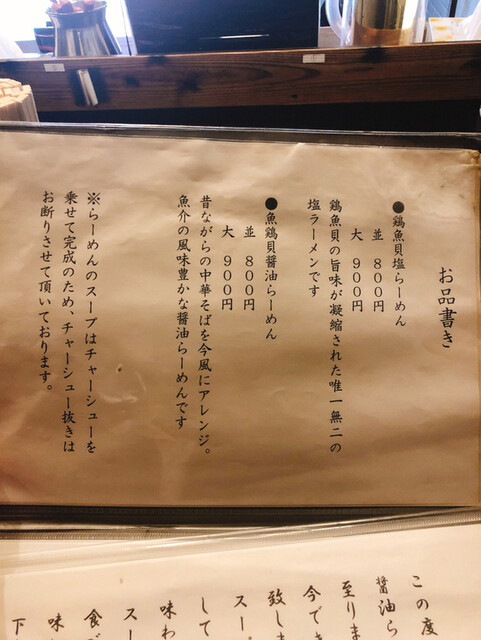 お品書き
●鶏魚貝塩らーめん
並 800円
大 900円
鶏魚貝の旨味が凝縮された唯一無二の
塩ラーメンです
●魚鶏貝醤油らーめん
並 800円
大 900円
昔ながらの中華そばを今風にアレンジ。
魚介の風味豊かな醤油らーめんです
※らーめんのスープはチャーシューを
乗せて完成のため、チャーシュー抜きは
お断りさせて頂いております。
この度
醤油ら
至りま
今でき
致しま
スー
して
味わ
スー
食べ
味
下